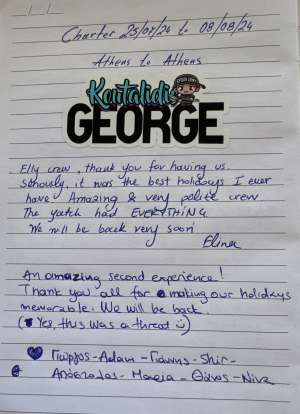 Charter 25/07/24 to 08/08/24
Athens to Athens
Koutalidis
GEORGE
Elly crew, thank you for having us.
Seriously, it was the best holidays I ever
have Amazing & very polite crew
The yatch had EVERYTHING
We will be back very soon
Elina
An amazing second experience!
Thank you all for making our holidays
memorable. We will be back.
(Yes, this was a threat :))
Γιώργος - Adam - Γιάννης - Shir -
Απόστολος - Μαρία - Θάνος - Νίνα